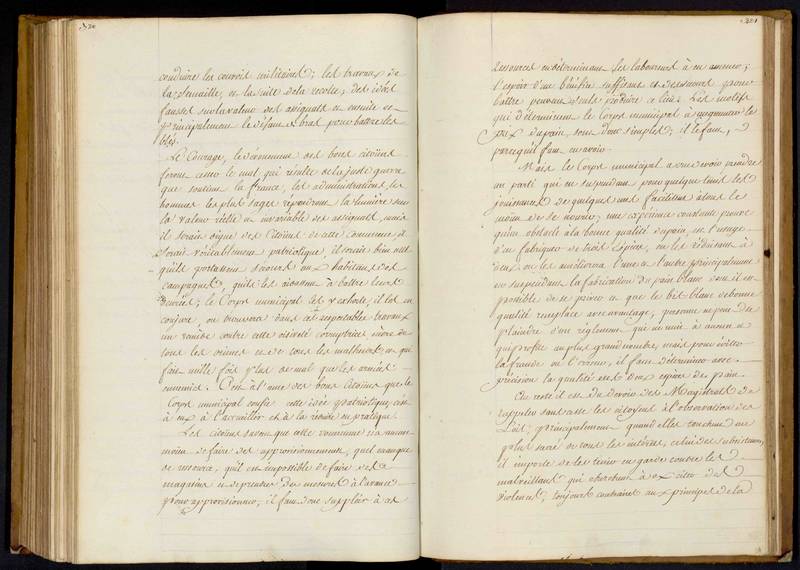 320
conduire les convois militaires; les travaux de
la semaille, et la suite de la recolte, des idées
fausses sur la valeur des assignats et ensuite ce
principalement le défaut de bras pour battre les
bleds.
Le Courage, le dévouement des bons citoïens
feront cesser le mal qui résulte de la juste guerre
que soutient la france, les administrations, les
hommes les plus sages répandront la lumière sur
la valeur réelle et invariable des assignats, mais
il serait digne des Citoïens de cette commune, il
serait véritablement patriotique, il serait bien utile
qu'ils portassent secours aux habitans des
campagnes, qu'ils les aidassent à battre leurs
denrées; le Corps municipal les y exhorte, il les en
conjure, on trouvera dans cet respectables travaux
un remède contre cette oisiveté corruptrice, mère de
tous les crimes et de tous les malheurs, et qui
fait mille fois plus de mal que les armées
ennemies. C'est à l'ame des bons citoïens que le
Corps municipal confie cette idée patriotique, c'est
à eux à l'accueillir et à la réduire en pratique.
Les citoïens savent que cette commune n'a aucun
moïen de faire des approvisionnements, qu'el manque
de ressource, qu'il est impossible de faire des
magasins et de prendre des mesures à l'avance
pour approvisionner, il faut donc suppléer à ces
321
ressources en déterminant les laboureurs à en amener;
l'espoir d'un bénéfice suffisant et des secours pour
battre peuvent seuls produire ce bien. Les motifs
qui déterminent le Corps municipal à augmenter le
prix du pain, sont donc simples; il le faut,
parce qu'il faut en avoir.
Mais le Corps municipal a cru devoir prendre
un parti qui en suspendant pour quelque tems les
jouissances de quelques uns facilitera à tous les
moïens de se nourrir; une expérience constante prouve
qu'un obstacle à la bonne qualité du pain, est l'usage
d'en fabriquer de trois espèces, en les réduisant à
deux on les améliorera l'une et l'autre principalement
en suspendant la fabrication du pain blanc dont il est
possible de se priver et que le bis blanc de bonne
qualité remplace avec avantage; personne ne peut se
plaindre d'un règlement qui ne nuit à aucun et
qui profite au plus grand nombre, mais pour éviter
la fraude ou l'erreur, il faut déterminer avec
précision la qualité des deux espèces de pain.
Au reste il est du devoir des Magistrats de
rappeler sans cesse les citoyens à l'observation des
Loix, principalement quand elles touchent au
plus sacré de tous les intérêts, celui des subsistances,
il importe de les tenir en garde contre les
malveillants qui cherchent à exciter des
violences, toujours contraires aux principes de la